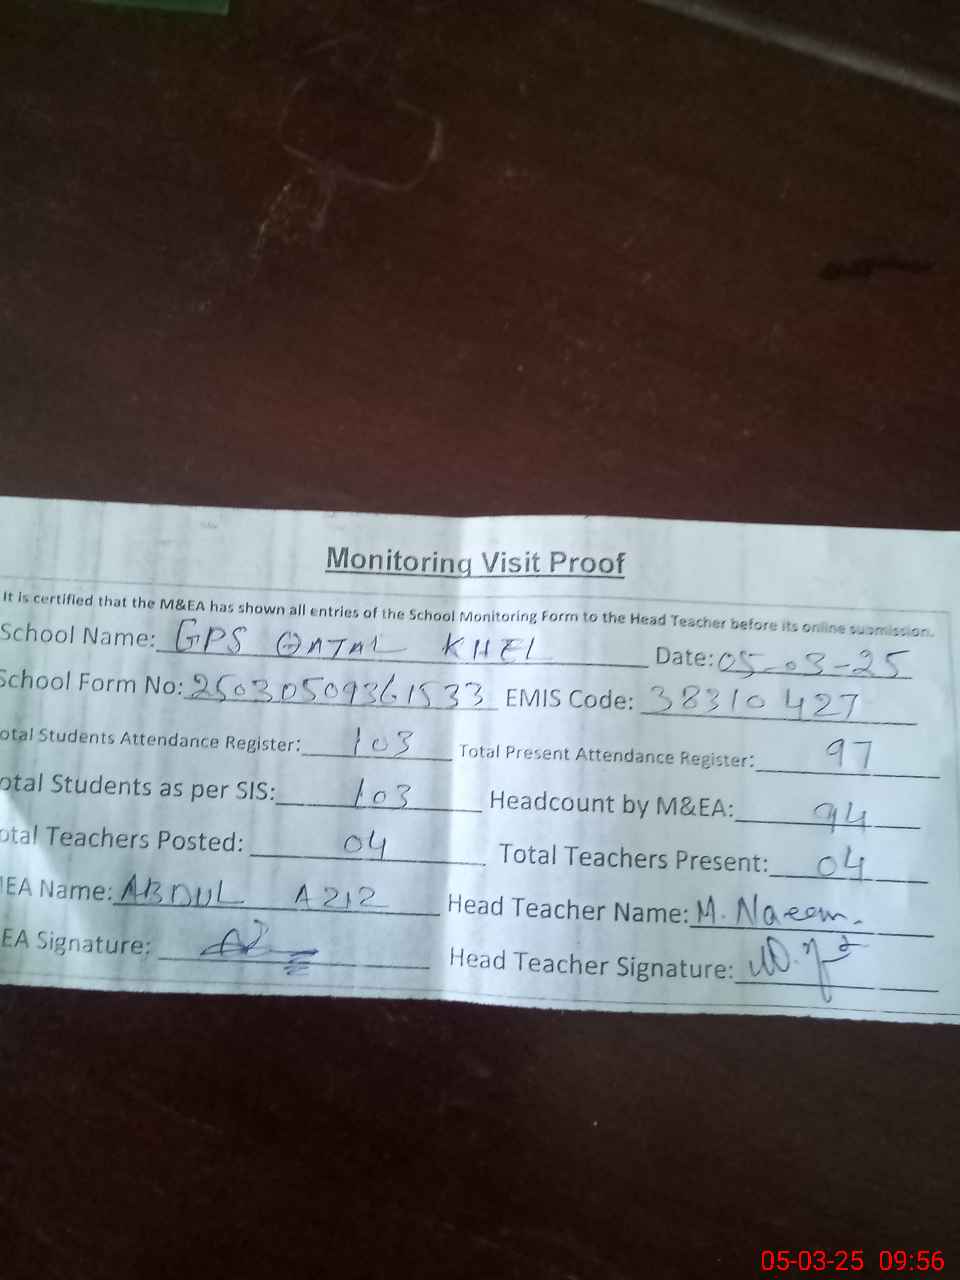 Monitoring Visit Proof
It is certified that the M&EA has shown all entries of the School Monitoring Form to the Head Teacher before its online submission.
School Name: GPS QATAL KHEL Date: 05-03-25
School Form No: 25030509361533 EMIS Code: 38310427
otal Students Attendance Register: 103 Total Present Attendance Register: 97
otal Students as per SIS: 103 Headcount by M&EA: 94
otal Teachers Posted: 04 Total Teachers Present: 04
EA Name: ABDUL AZIZ Head Teacher Name: M. Naeem.
EA Signature: Head Teacher Signature:
05-03-25 09:56